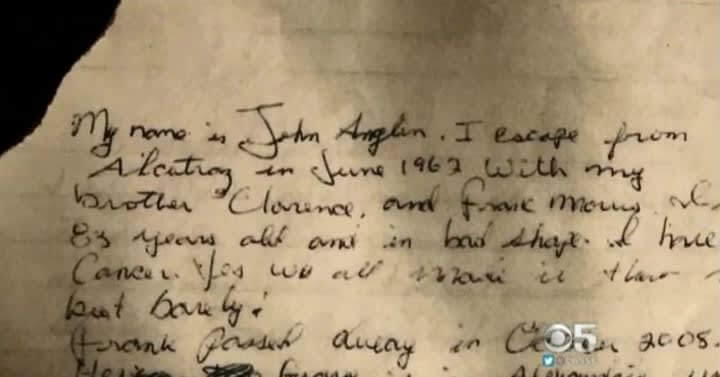 My name is John Anglin. I escape from
Alcatraz in June 1962 With my
brother Clarence, and Frank Morris. I
83 years old and in bad shape. I have
Cancer. Yes we all made it that
but barely!
Frank Passed away in 2008.
5